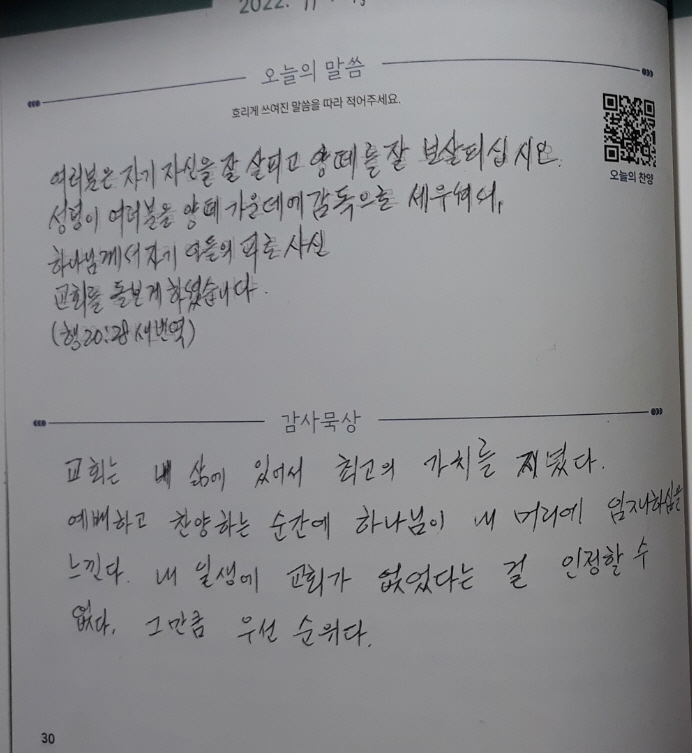 2022. 11
오늘의 말씀
흐리게 쓰여진 말씀을 따라 적어주세요.
오늘의 찬양
여러분은 자기 자신을 잘 살피고 양떼를 잘 보살피십시오.
성령이 여러분을 양떼 가운데에 감독으로 세우셔서,
하나님께서 자기 아들의 피로 사신
교회를 돌보게 하셨습니다.
(행20:28 새번역)
감사묵상
교회는 내 삶에 있어서 최고의 가치를 지녔다.
예배하고 찬양하는 순간에 하나님이 내 머리에 임재하심을
느낀다. 내 일생에 교회가 없었다는 걸 인정할 수
없다. 그만큼 우선 순위다.
30